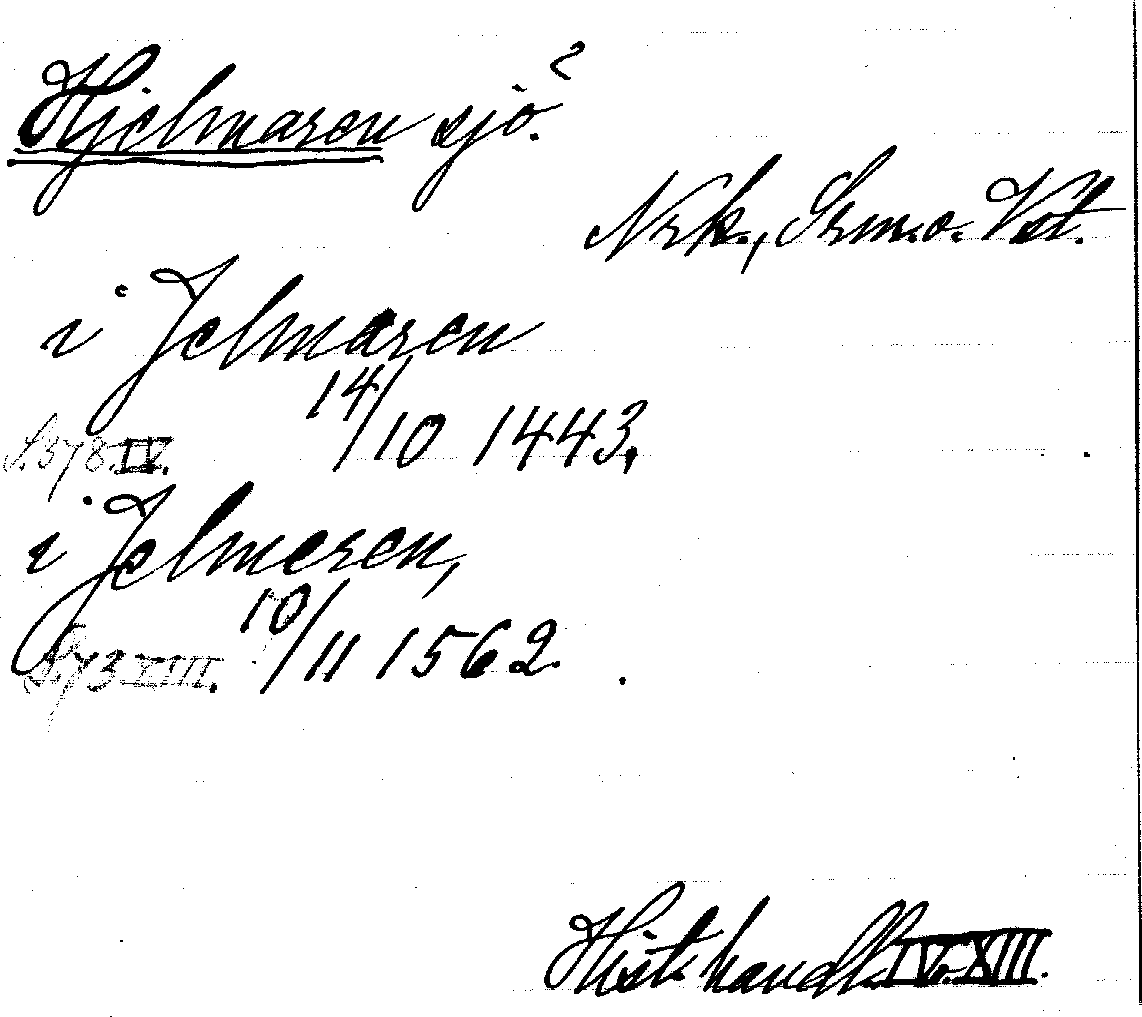 Hjelmaren sjö.?
Nrk., Srm. o. Vst.
i Jelmaren
14/10 1443.
S. 378. IV.
i Jelmeren,
10/11 1562.
S. 73 XIII.
Hist. handl. IV. XIII.